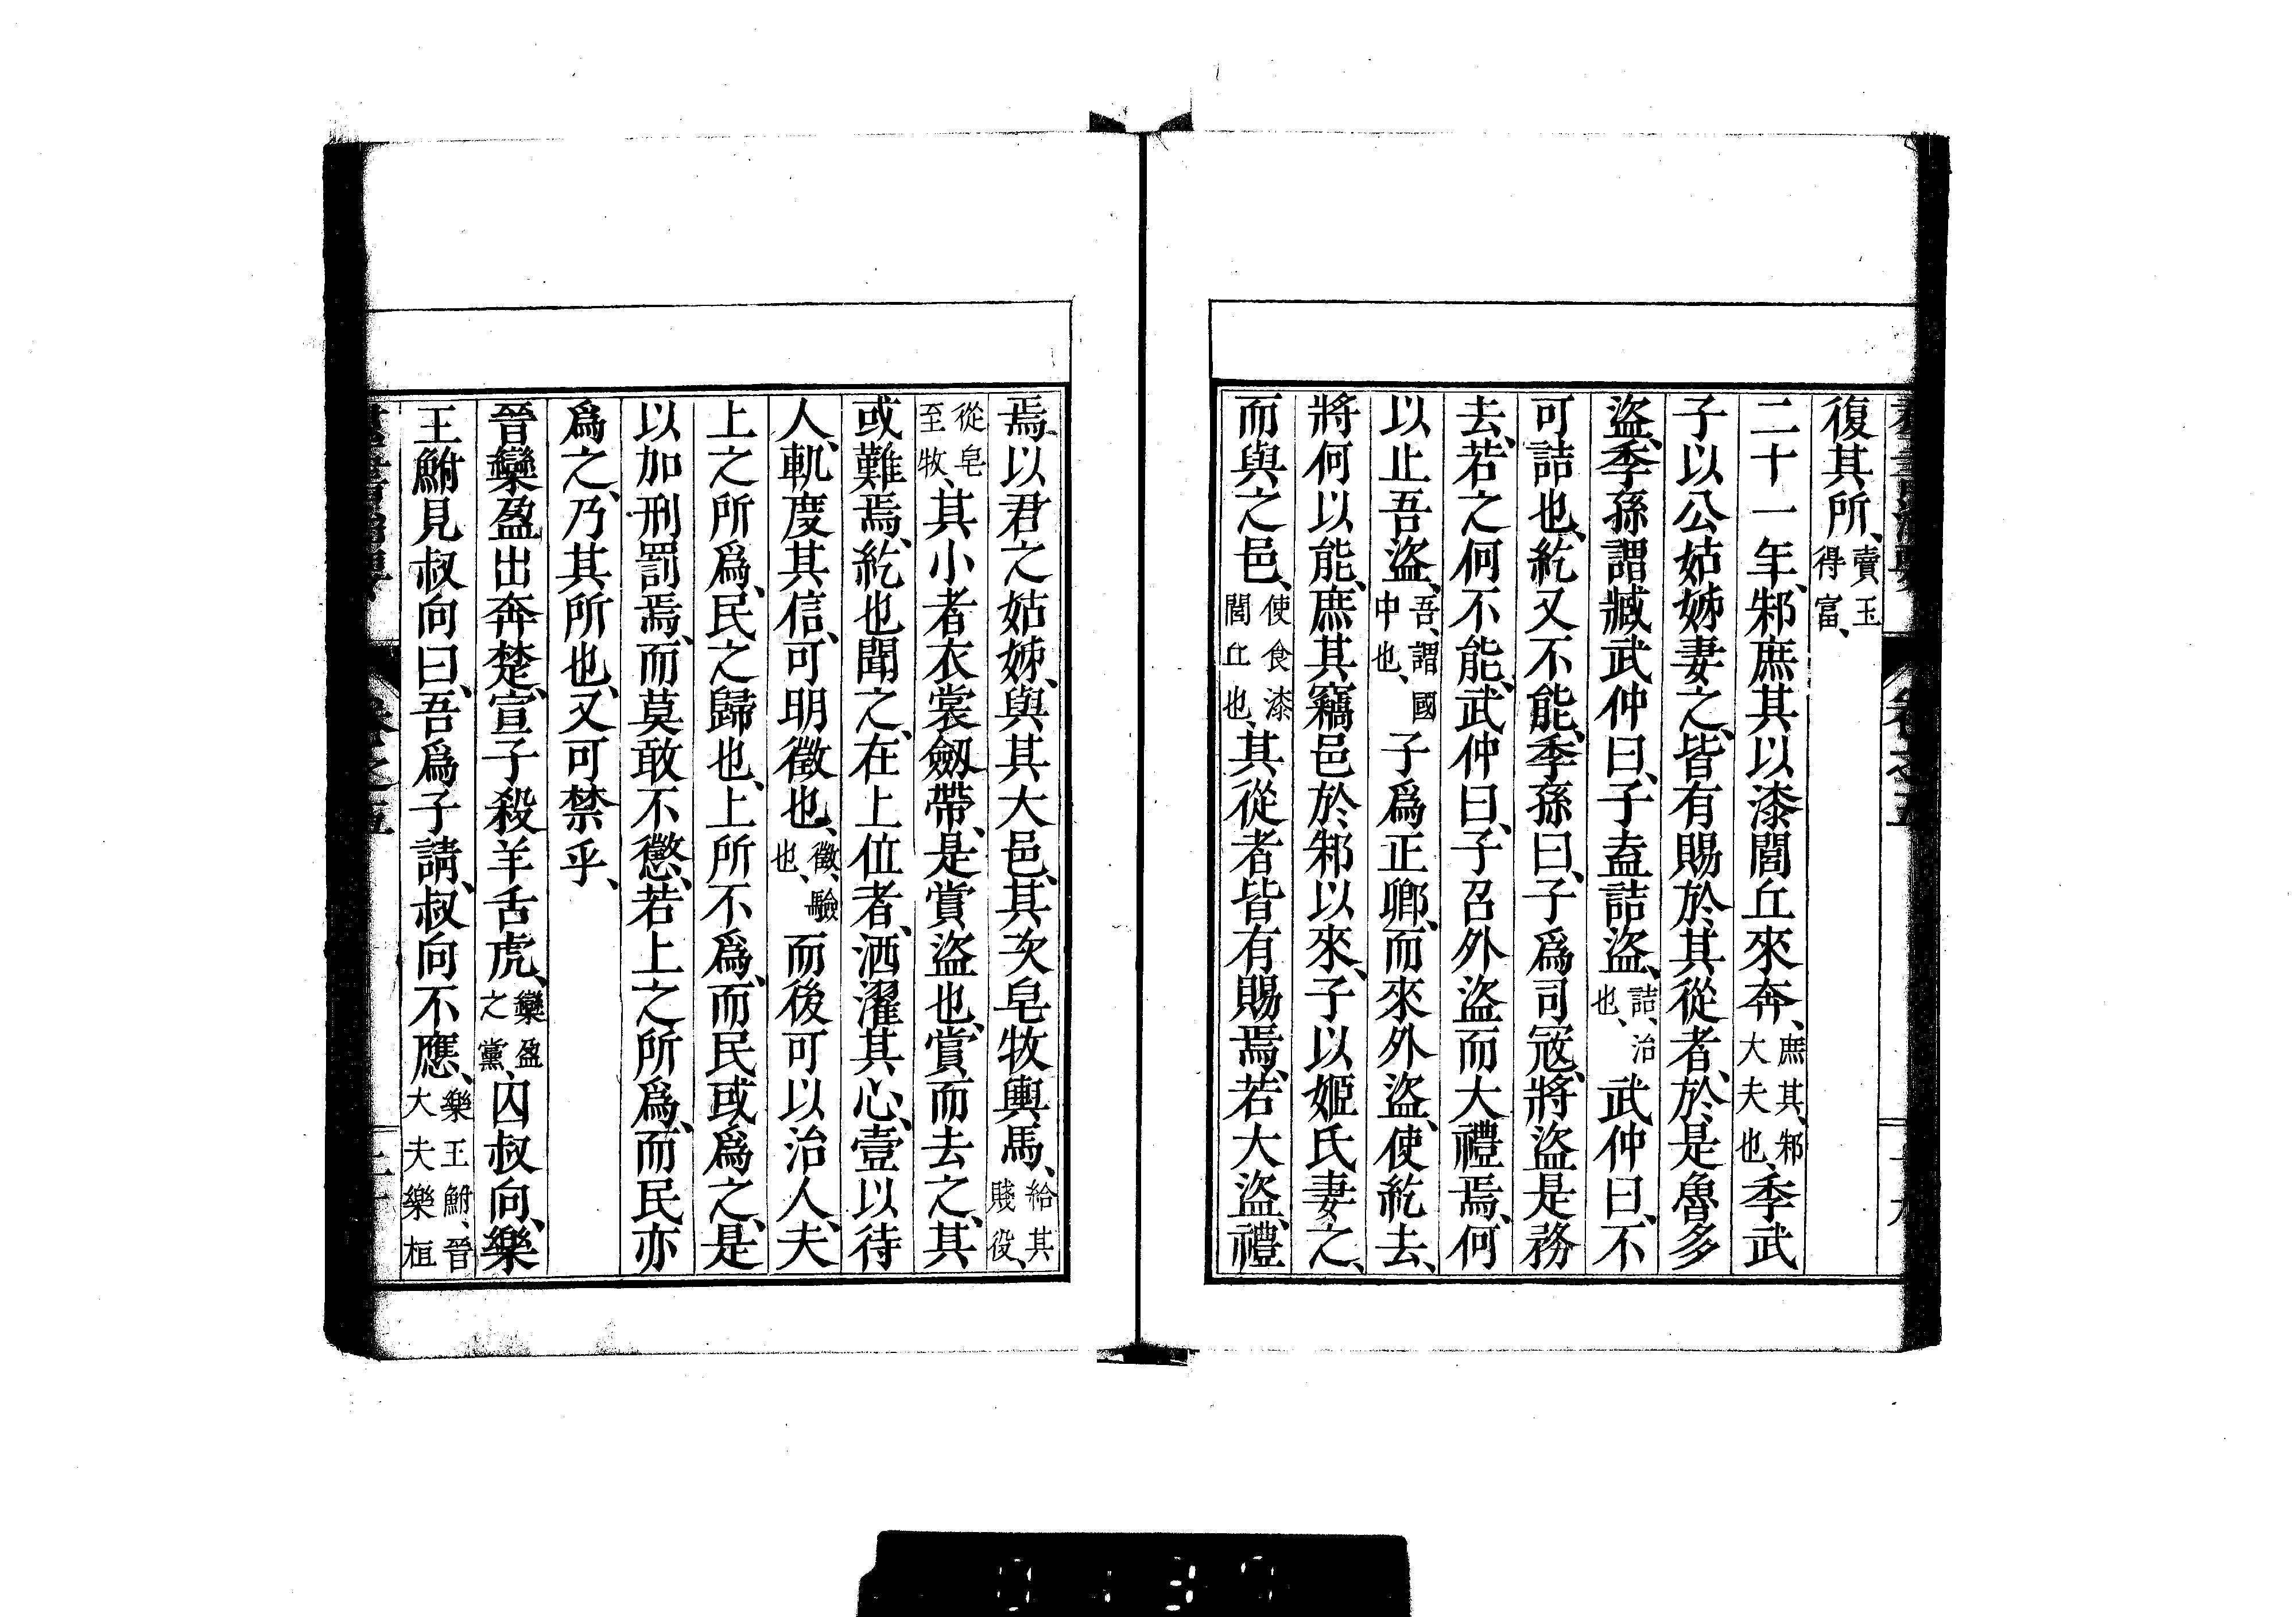 復其所、賣玉得富、
二十一年、邾庶其以漆閭丘來奔、庶其、邾大夫也、季武
子以公姑姊妻之、皆有賜於其從者、於是魯多
盜、季孫謂臧武仲曰、子盍詰盜、詰、治也、武仲曰、不
可詰也、紇又不能、季孫曰、子爲司寇、將盜是務
去、若之何不能、武仲曰、子召外盜而大禮焉、何
以止吾盜、吾、謂國中也、子爲正卿、而來外盜、使紇去、
將何以能、庶其竊邑於邾以來、子以姬氏妻之、
而與之邑、使食漆閭丘也、其從者皆有賜焉、若大盜、禮
焉、以君之姑姊、與其大邑、其次皂牧輿馬、給其賤役、
從皂至牧、其小者衣裳劒帶、是賞盜也、賞而去之、其
或難焉、紇也聞之、在上位者、洒濯其心、壹以待
人、軌度其信、可明徵也、徵、驗也、而後可以治人、夫
上之所爲、民之歸也、上所不爲、而民或爲之、是
以加刑罰焉、而莫敢不懲、若上之所爲、而民亦
爲之、乃其所也、又可禁乎、
晉欒盈出奔楚、宣子殺羊舌虎、欒盈之黨、囚叔向、樂
王鮒見叔向曰、吾爲子請、叔向不應、樂王鮒、晉大夫樂桓